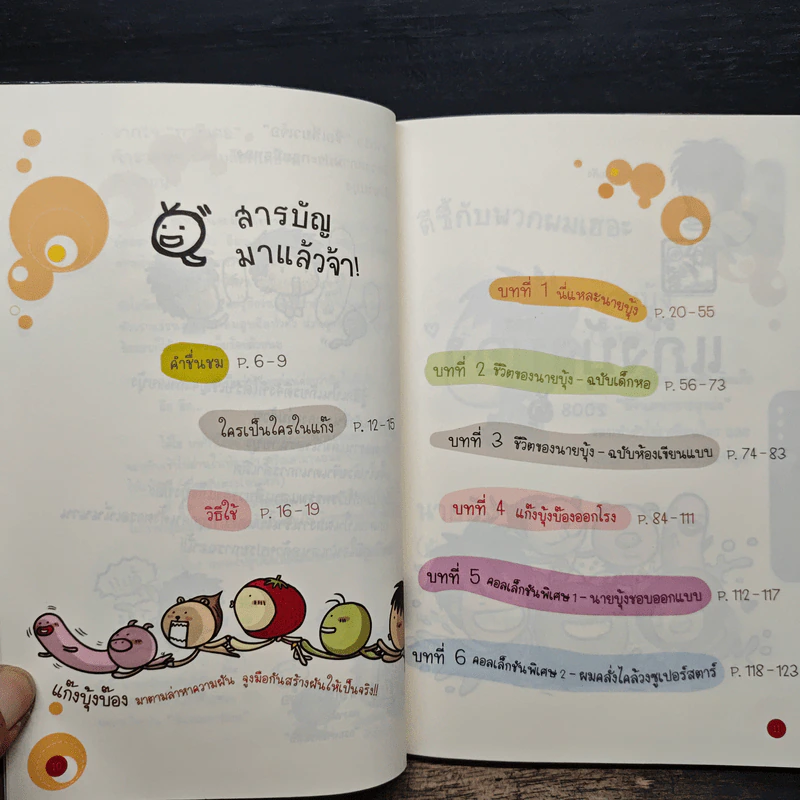 สารบัญ
มาแล้วจ้า!
คำชื่นชม P. 6-9
ใครเป็นใครในแก๊ง P. 12-15
วิธีใช้ P. 16-19
แก๊งบุ้งบ๊อง มาตามล่าหาความฝัน จูงมือกันสร้างฝันให้เป็นจริง!!
บทที่ 1 นี่แหละนายบุ้ง P. 20-55
บทที่ 2 ชีวิตของนายบุ้ง - ฉบับเด็กหอ P. 56-73
บทที่ 3 ชีวิตของนายบุ้ง - ฉบับห้องเขียนแบบ P. 74-83
บทที่ 4 แก๊งบุ้งบ๊องออกโรง P. 84-111
บทที่ 5 คอลเล็กชันพิเศษ 1 - นายบุ้งชอบออกแบบ P. 112-117
บทที่ 6 คอลเล็กชันพิเศษ 2 - ผมคลั่งไคล้วงซูเปอร์สตาร์ P. 118-123
11